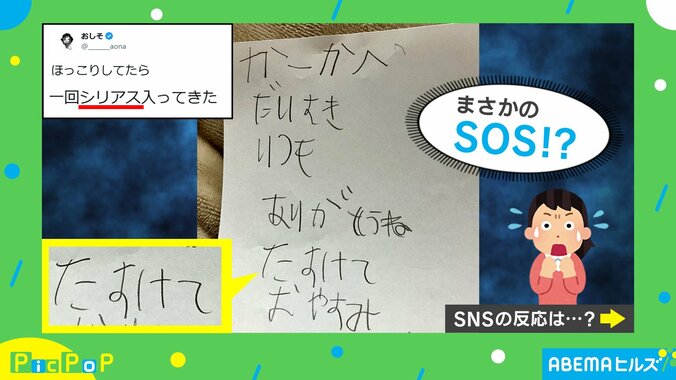 おしそ
@______aona
ほっこりしてたら
一回シリアス入ってきた
かーかへ
だいすき
いつも
ありがとうね
たすけて
おやすみ
たすけて
まさかの
SOS!?
SNSの反応は…？
PicPoP
ABEMAヒルズ